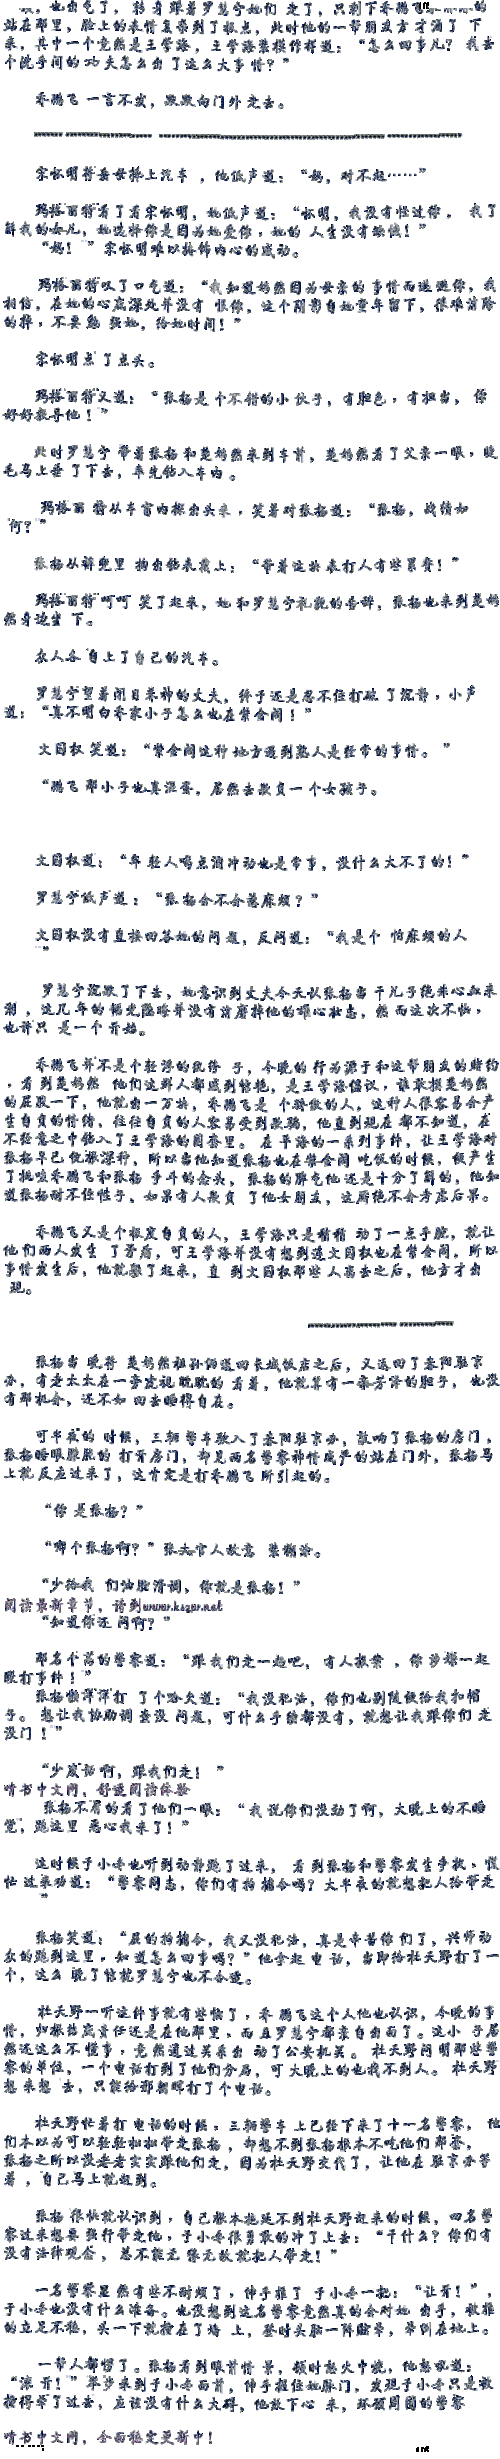 站在那里，脸上的表情复杂到了极点，此时他的一帮朋友方才涌了 下
来，其中一个竟然是王学海，王学海装模作样道：“怎么回事儿？ 我去
个洗手间的功 夫怎么出 了这么大事 情？”
乔鹏飞 一言不发，默默向门外 走去。
宋怀明将岳母掺上汽车 ，他低声道：“妈，对不起……”
玛格丽特看了看宋怀明，她低声道：“怀明，我没有怪过你， 我了
解我的女儿，她选择你是因为她爱你，她的 人生没有缺憾！”
“妈！ ”宋怀明难以掩饰内心的感动。
玛格丽特叹了口气道：“我知道嫣然因为母亲的 事情而迷 迷你，我
相信，在她的心底深处并没有 恨你，这个阴影自她童年留下，很难消除
的掉，不要勉 强她，给她时间！”
宋怀明点 了点头。
玛格丽特又道：“张扬是 个不错的小 伙子，有胆色，有担当， 你
好好教导他！”
此时罗慧宁 带着张扬 和楚嫣然来到车前，楚嫣然看了父亲一眼，睫
毛马上垂 了下去，率先钻入车内 。
玛格丽 特从车窗内探出头来，笑着对张扬道：“张扬，战绩如
何？”
张扬从裤兜里 掏出钻表戴上：“带着这块表打人有些累赘！”
玛格丽特呵呵 笑了起来，她 和罗慧宁礼貌的告辞，张扬也来到楚嫣
然身边坐 下。
众人各 自上了自己的汽车。
罗慧宁望着闭目养神的丈夫，终于还是忍不住打破 了沉静，小声
道：“真不明白乔家小子怎么也在紫金阁！”
文国权 笑道：“紫金阁这种 地方遇到熟人是经常的事情。 ”
“鹏飞 那小子也真混蛋，居然去欺负一 个女孩子。
文国权道：“年 轻人喝点酒冲动也是常事，没什么大不了的！”
罗慧宁低声道 ：“张 扬会不会惹麻烦？”
文国权没有直接回答她的问 题，反问道：“我是个 怕麻烦的人
”
罗慧宁沉默了下去，她意识到丈夫今天认张扬当 干儿子绝非心血来
潮 ，这几 年的韬光隐晦并没有消磨掉他的雄心壮志，然 而这次不快，
也许只 是一个 开始。
乔鹏飞并不是个轻浮的纨绔 子，今晚的 行为源于和这帮朋友的赌约
，看 到楚嫣然 他们这群人都感到惊艳，是王学海倡议，谁敢摸楚嫣然
的屁股一下，他就出一万块，乔鹏飞是 个骄傲的人，这种人很容易会产
生自负的情绪，往往自负的人容易受到欺骗，他直到现在 都不知道，在
不经意之中钻入了王学海的圈套里。 在 平海的一系列事件，让王学海对
张扬早已 仇恨深种，所以当他知道张扬也在紫金阁 吃饭的时候，便产生
了挑唆乔鹏飞和张扬 争斗的念头， 张扬的脾气他 还是十分了解的，他知
道张扬耐不住性子，如果有人欺负 了他女朋友，这厮绝不会考虑后果。
乔鹏飞又是个极度自负的人，王学海只是稍稍 动了一点手腕，就让
他们两人发生 了矛盾，可王学海并没有想到连文国权也在紫金阁，所以
事情发生后，他就躲了起来，直 到文国权那些 人离去之后，他方才出
现。
张扬当 晚将 楚嫣然祖孙俩送回长城饭店之后，又返回了春阳驻京
办，有老太太在一旁虎视眈眈的 看着，他就算有一条芳泽的胆子， 也没
有那机会，还不如 回去睡得自在。
可半夜的 时候，三辆警车驶入了春阳驻京办，敲响了张扬的房门，
张扬睡眼朦胧的 打开房门，却见两名警察神情威严的站在门外，张扬马
上就 反应过来了，这肯定是打乔鹏飞 所引起的。
“你 是张扬？”
“哪个张扬啊？”张大官人故意 装糊涂。
“少给我 们油腔滑调，你就是张扬！”
阅读最新章节，请到www.kszw.net
“知道你还 问啊？”
那名个高的警察道：“跟我们走一趟吧， 有人报案 ，你 涉嫌一起
殴打事件！”
张扬懒洋洋打 了个哈欠道：“我没犯法，你们也别随便给我扣帽
子。 想让我协助调 查没 问题，可什么手续都没有，就想让我跟你们 走
没门 ！”
“少废话 啊，跟我们走！ ”
啃书中文网，舒适阅读体验
张扬不屑的看了他们一眼：“我 说你们没劲了啊，大晚上的不睡
觉，跑这里 恶心我来了！”
这时候于小冬也听到动静跑了过来， 看 到张扬和警察发生争执，慌
忙 过来劝道：“警察同志，你们有拘 捕令吗？大半夜的就想把人给带走
”
张扬笑道：“屁的拘捕令，我又没犯法，真是辛苦你 们了，兴师动
众的跑到这里，知 道怎么回事吗？”他拿起 电 话，当即给杜天野打了一
个，这么 晚了惊扰罗慧宁也不合适。
杜天野一听这件事就有些恼了，乔 鹏飞这个人他也认识，今晚的事
情，归根结底责任还是在他那里，而 且罗慧宁都亲自出面了。这小 子居
然还这么不 懂事，竟然通过关系出 动了公安机关。 杜天野问 明那些警
察的单位，一个电话打到了他们分局，可 大晚上的也找不到人。 杜天野
想 来想 去，只能给邢朝晖打了个电话。
杜天野忙着打 电话的时候，三辆警车 上已经下来了十一名警察， 他
们本以为可以轻轻松松带走张扬 ，却想不到张扬根本不吃他们那套，
张扬之所以没老老实实跟他们走，因为杜天野交代了，让他在 驻京办等
着 ，自己马上就赶到。
张扬 很快就认识到，自己根本拖延不到杜天野赶来的时候，四名警
察过来想要 强行带走他，于小冬很勇敢的冲了上去：“干什么？你们有
没有法律观念 ，总不能无 缘无故就把人带走！”
一名警察显然有些不耐烦了，伸手推了 于小冬一把：“让开！”，
于小冬也没有什么准备。也没想到这名警察竟然真的会对她 出手，被推
的立足不稳，头一下就撞在了墙 上，登时头脑一阵眩晕，晕倒在地上。
一帮人都愣了。张扬看到眼前情 景，顿时怒火中烧，他怒吼道：
“滚 开！”举步来到于小冬面前，伸手握住她脉门，发现于小冬只是被
撞得晕了过去，应该没有什么大碍，他放下心 来，环顾周围的警察
啃书中文网，全面稳定更新中！